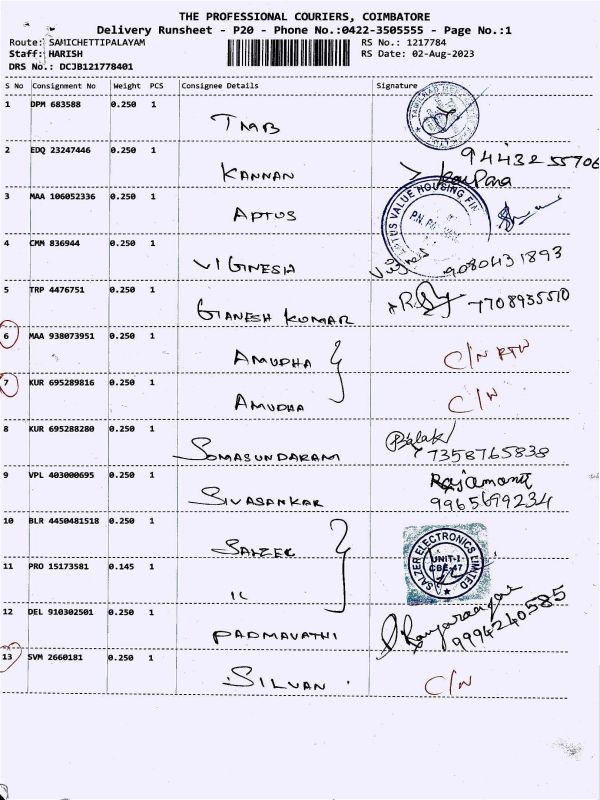 THE PROFESSIONAL COURIERS, COIMBATORE
Delivery Runsheet - P20 - Phone No.:0422-3505555 - Page No.:1
Route: SAMICHETTIPALAYAM RS No.: 1217784
Staff: HARISH RS Date: 02-Aug-2023
DRS No.: DCJB121778401
S No Consignment No Weight PCS Consignee Details Signature
1 DPM 683588 0.250 1
TMB
2 EDQ 23247446 0.250 1 94432 55706
KANNAN
3 MAA 106052336 0.250 1
APTUS
LOTUS VALUE HOUSING FIN
4 CMM 836944 0.250 1
VIGNESH 9080431893
5 TRP 4476751 0.250 1 7708935510
GANESH KUMAR
6 MAA 938073951 0.250 1
AMUDHA C/N RTN
7 KUR 695289816 0.250 1 C/N
AMUDHA
8 KUR 695288280 0.250 1
SOMASUNDARAM 7358765838
9 VPL 403000695 0.250 1 Rajamani
SIVASANKAR 9965699234
10 BLR 4450481518 0.250 1
SALZER
SALZER ELECTRONICS LIMITED
UNIT-I
CBE-47
11 PRO 15173581 0.145 1
12 DEL 910302501 0.250 1 9994240585
PADMAVATHI
13 SVM 2660181 0.250 1
SILVAN C/N